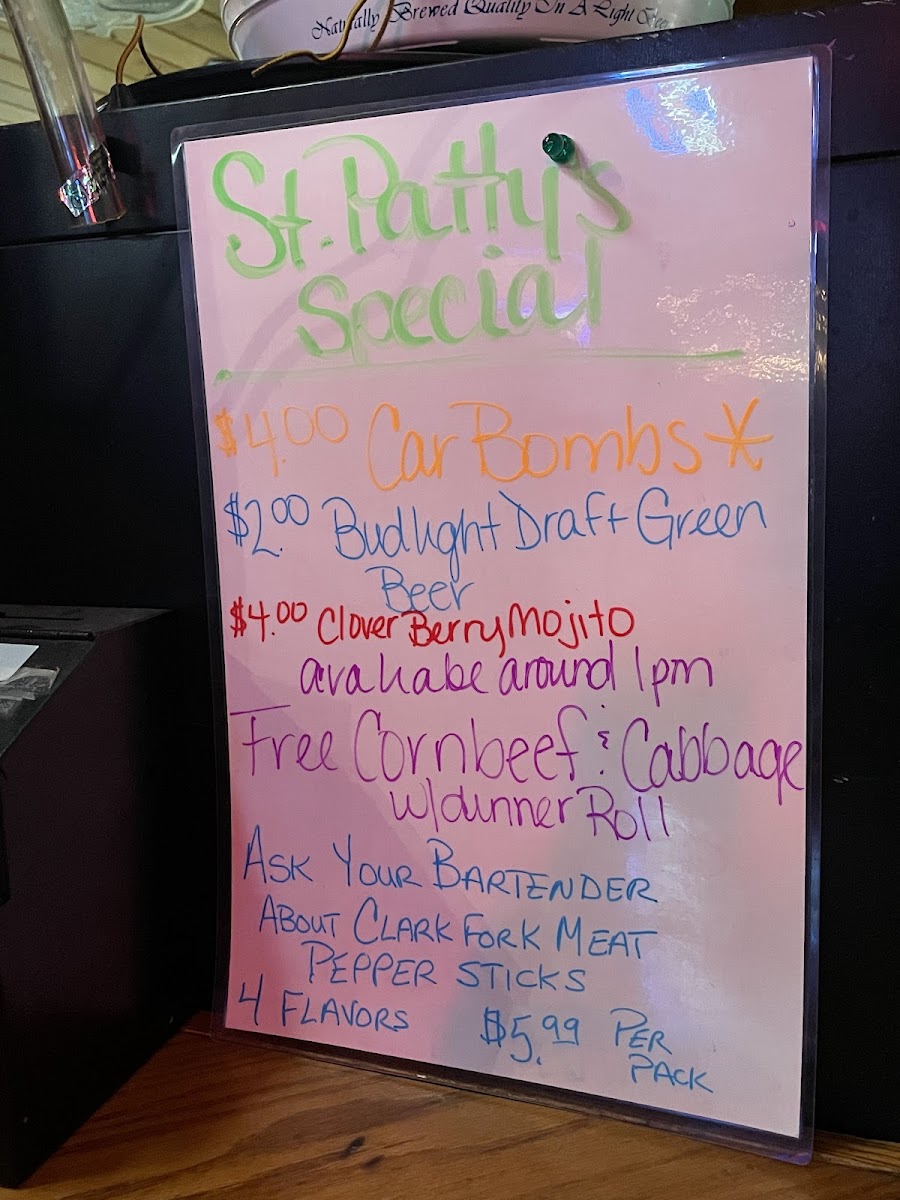 Naturally Brewed Quality In A Light Beer
St. Patty's
Special
$4.00 Car Bombs*
$2.00 Budlight Draft Green
Beer
$4.00 Clover Berry Mojito
avaliabe around 1pm
Free Cornbeef & Cabbage
w/dinner Roll
ASK YOUR BARTENDER
ABOUT CLARK FORK MEAT
PEPPER STICKS
4 FLAVORS $5.99 PER
PACK